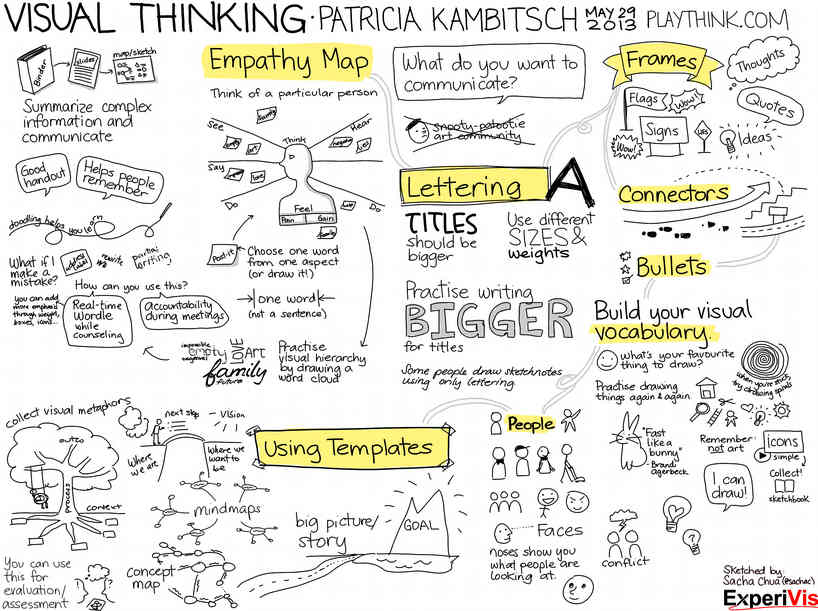 VISUAL THINKING · PATRICIA KAMBITSCH MAY 29 2013 PLAYTHINK.COM
Binder
slides
map/sketch
Summarize complex
information and
communicate
Good
handout
Helps people
remember
doodling helps you learn
What if I
make a
mistake?
address
label
rewrite
partial
writing
you can add
more emphasis
through weight,
boxes, icons...
How can you use this?
Real-time
Wordle
while
counseling
Accountability
during meetings
Empathy Map
Think of a particular person
See
Think
Hear
Say
Do
Do
Feel
Pain
Gain
Post-it
Choose one word
from one aspect
(or draw it!)
one word
(not a sentence)
impossible
empty
LOVE
ART
family
future
Practise
visual hierarchy
by drawing a
word cloud
What do you want to
communicate?
snooty-patootie
art community
Lettering
A
TITLES
should be
bigger
Use different
SIZES &
weights
Practise writing
BIGGER
for titles
Some people draw sketchnotes
using only lettering.
Frames
Thoughts
Flags
Wow!
Quotes
Signs
Wow!
Ideas
Connectors
Bullets
Build your visual
vocabulary.
what's your favourite
thing to draw?
when you're stuck,
try drawing spirals
Practise drawing
things again & again
"Fast
like a
bunny"
- Brandy
Agerbeck
Remember:
not art
icons
simple
Collect!
sketchbook
I can
draw!
conflict
collect visual metaphors
process
context
next step
VISION
Where
we are
Where we
want to
be
Using Templates
mindmaps
concept
map
big picture/
story
GOAL
You can use
this for
evaluation/
assessment
People
Faces
noses show you
what people are
looking at.
Sketched by:
Sacha Chua (@sachac)
ExperiVis